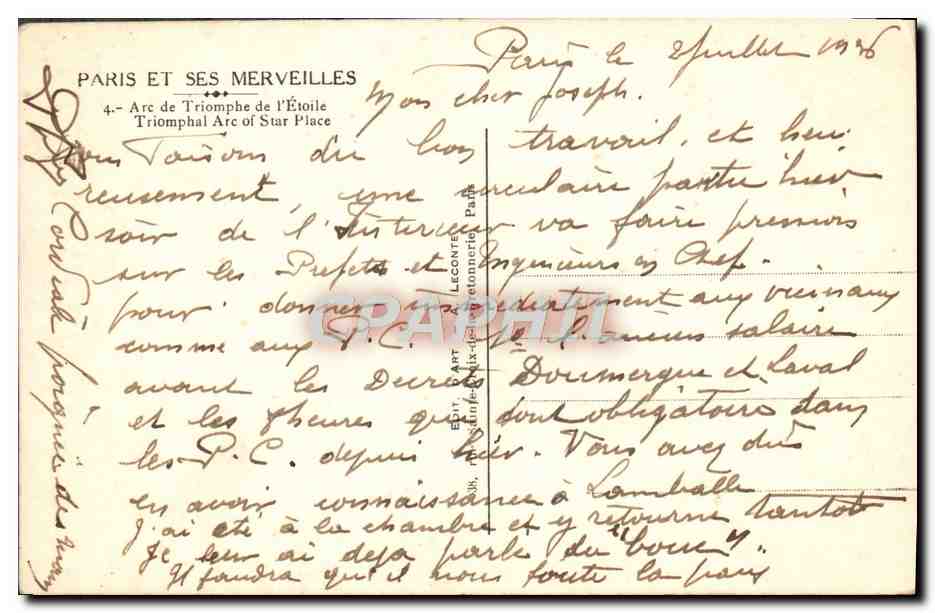 PARIS ET SES MERVEILLES
4.- Arc de Triomphe de l'Étoile
Triomphal Arc of Star Place
Paris le 2 Juillet 1936
Mon cher Joseph.
Nous faisons du bon travail, et heu-
reusement, une circulaire partie hier
soir de l'Interieur va faire pression
sur les Prefets et Ingenieurs en Chef.
pour donner immediatement aux vicinaux
comme aux P.C. l'ancien salaire
avant les Decrets Doumergue et Laval
et les 8 heures qui sont obligatoires dans
les P.C. depuis hier. Vous avez dûs
en avoir connaissance à Lamballe
J'ai été à la chambre et y retourne tantot
Je leur ai deja parlé du "bouc".
Il faudra qu'il nous foute la paix
Cordiale poignée de mains
EDIT. D'ART LECONTE
38, rue Sainte-Croix-de-la-Bretonnerie, Paris
CPAPHIL